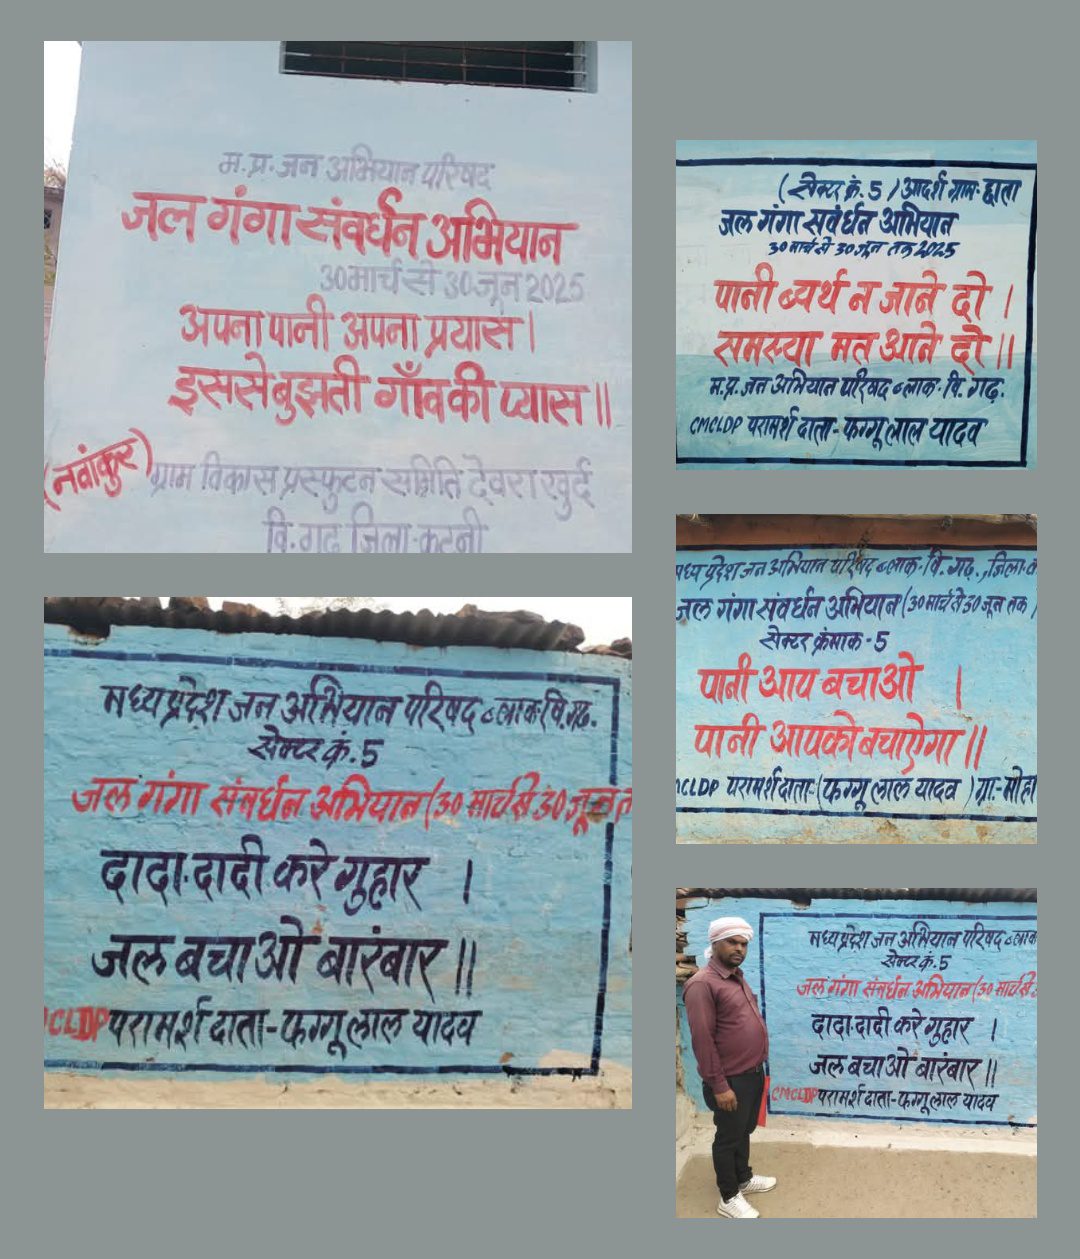 म.प्र. जन अभियान परिषद
जल गंगा संवर्धन अभियान
30 मार्च से 30 जून 2025
अपना पानी अपना प्रयास।
इससे बुझती गाँव की प्यास॥
(नवांकुर) ग्राम विकास प्रस्फुटन समिति देवरा खुर्द
वि.गढ़ जिला-कटनी
(सेक्टर क्रं. 5) आदर्श ग्राम-द्वाता
जल गंगा सवंर्धन अभियान
30 मार्च से 30 जून तक 2025
पानी व्यर्थ न जाने दो।
समस्या मत आने दो॥
म.प्र. जन अभियान परिषद ब्लाक-वि. गढ़.
CMCLDP परामर्श दाता-फग्गू लाल यादव
मध्यप्रदेश जन अभियान परिषद ब्लाक-वि.गढ.
सेक्टर क्रं. 5
जल गंगा संवर्धन अभियान (30 मार्च से 30 जून त
दादा-दादी करे गुहार ।
जल बचाओ बारंबार॥
CLDP परामर्श दाता-फग्गू लाल यादव
मध्य प्रदेश जन अभियान परिषद ब्लाक-वि. गढ., जिला-क
जल गंगा संवर्धन अभियान (30 मार्च से 30 जून तक)
सेक्टर क्रंमाक-5
पानी आप बचाओ ।
पानी आपको बचाऐगा॥
CLDP परामर्श दाता-(फग्गू लाल यादव) ग्रा-मोहा
मध्यप्रदेश जन अभियान परिषद ब्लाक
सेक्टर क्रं. 5
जल गंगा संवर्धन अभियान (30 मार्च से 3
दादा-दादी करे गुहार ।
जल बचाओ बारंबार॥
CMCLDP परामर्श दाता-फग्गू लाल यादव